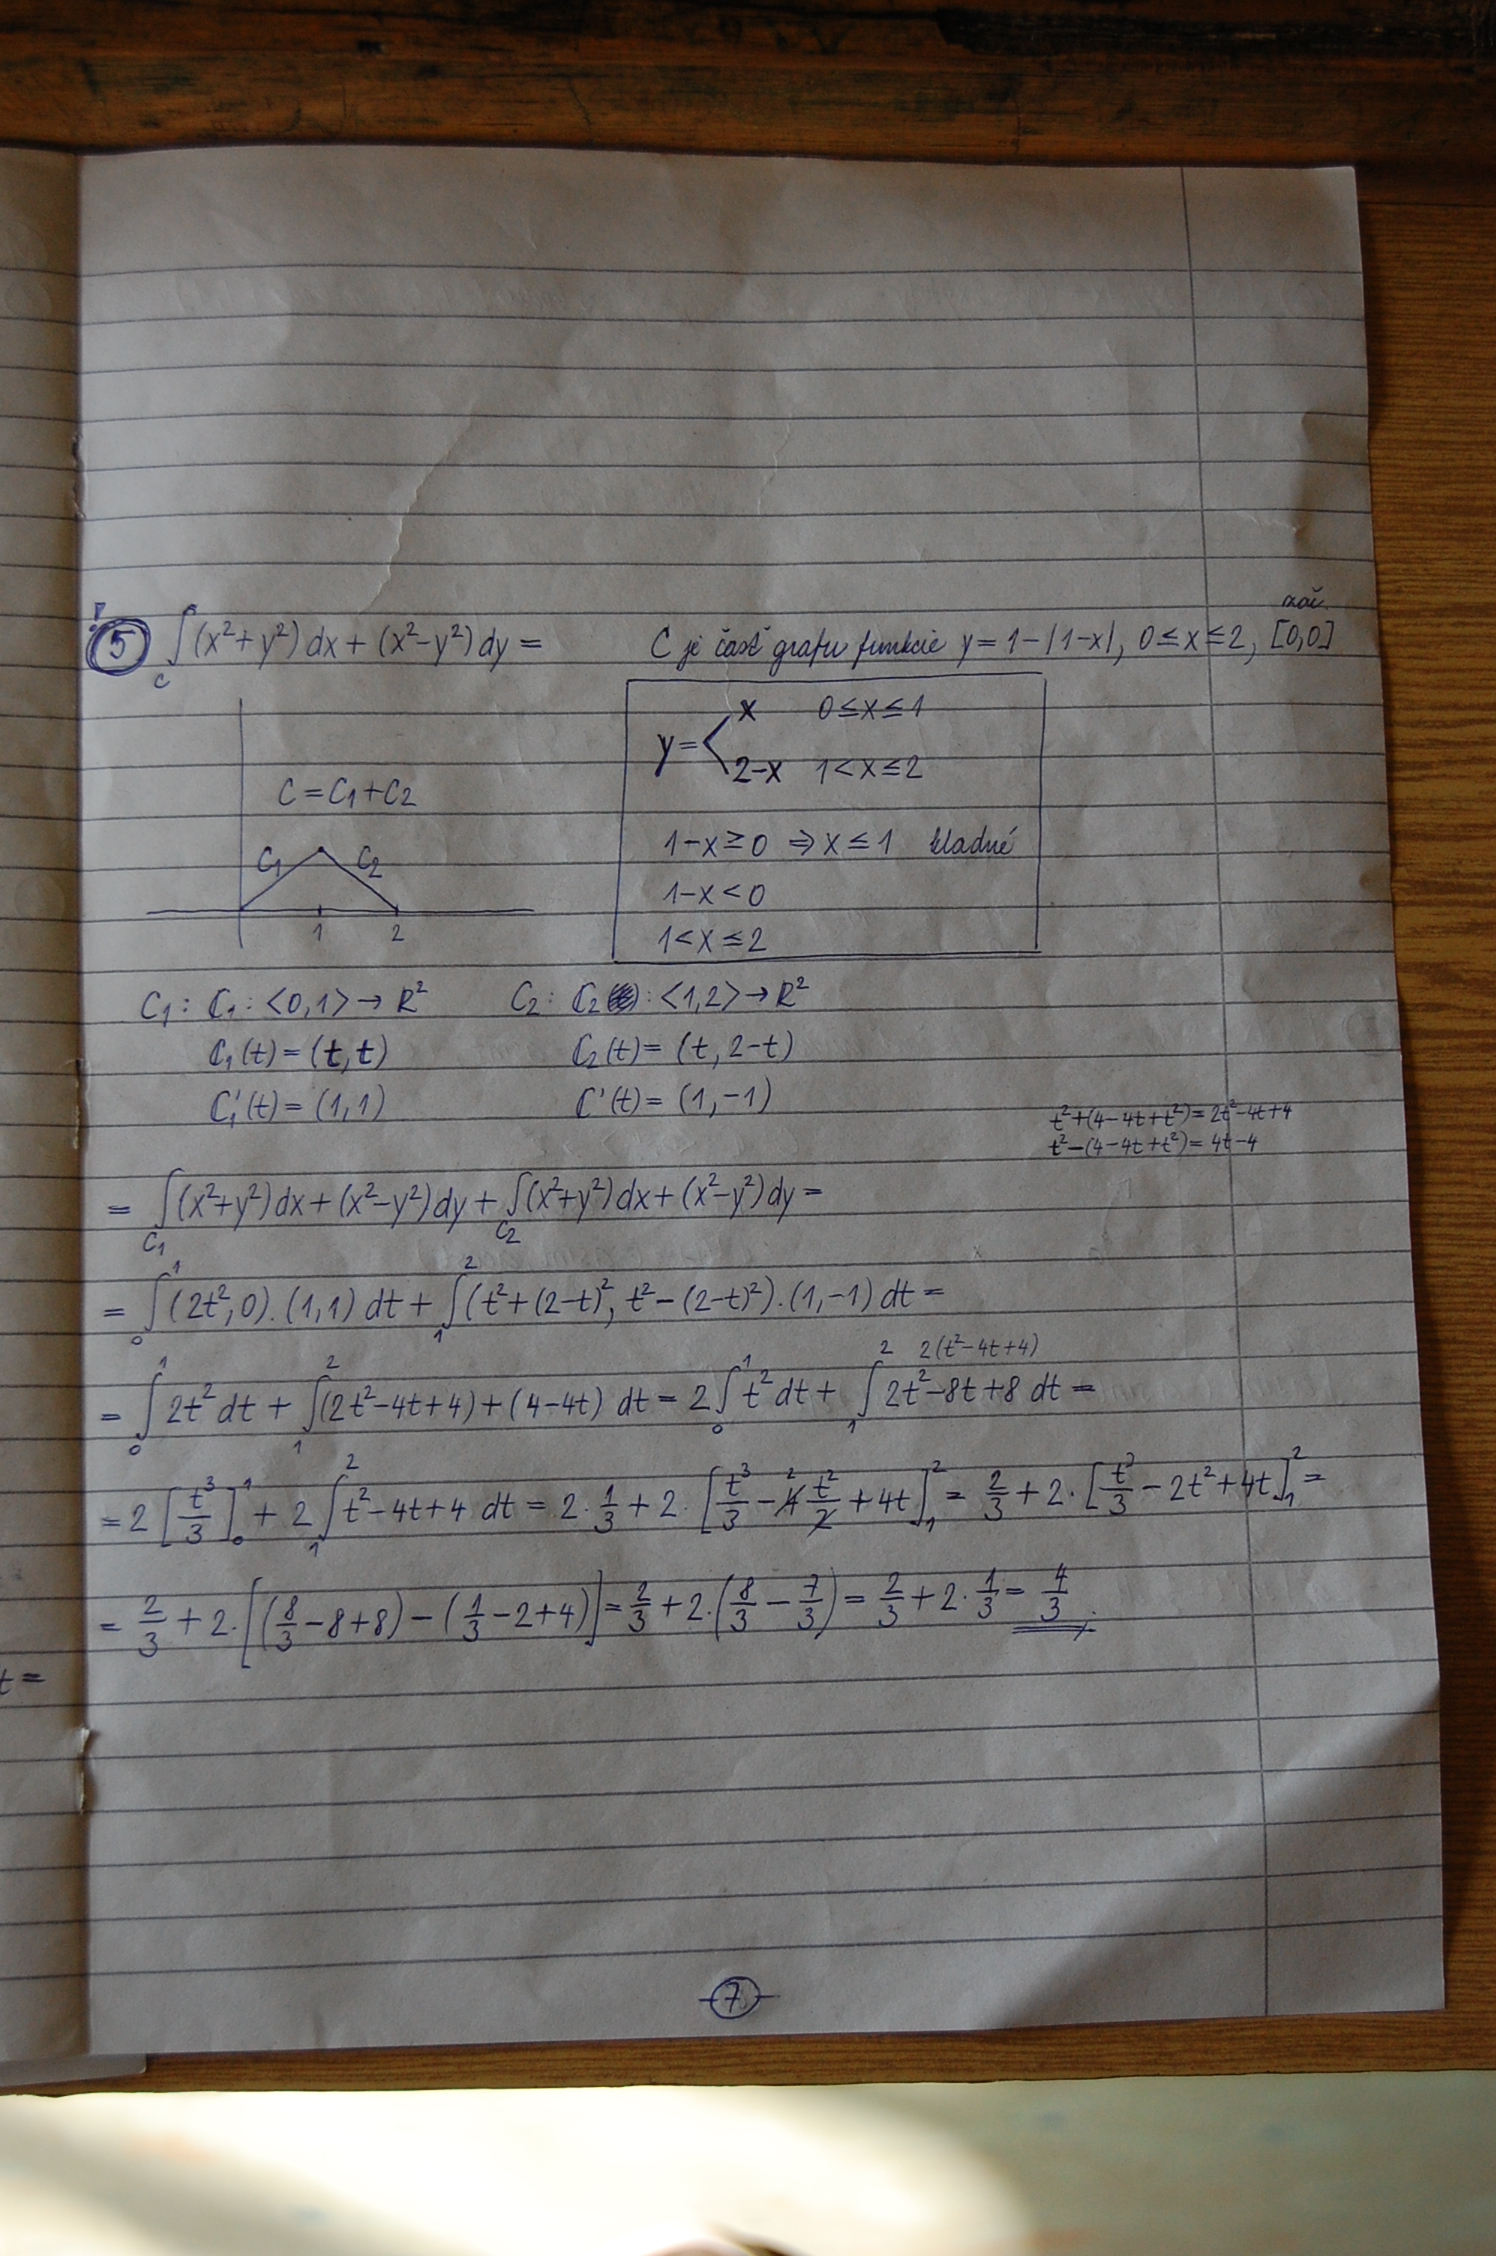 zač.
P. 5 ∫_C (x²+y²) dx + (x²-y²) dy = C je časť grafu funkcie y = 1-|1-x|, 0≤x≤2, [0,0]
y = x 0≤x≤1
2-x 1<x≤2
C = C₁+C₂
1-x≥0 ⇒ x≤1 kladné
C₁ C₂
1-x<0
1 2
1<x≤2
C₁: C₁: <0,1> → R² C₂: C₂: <1,2> → R²
C₁(t) = (t, t) C₂(t) = (t, 2-t)
C₁'(t) = (1,1) C'(t) = (1,-1)
t²+(4-4t+t²) = 2t²-4t+4
t²-(4-4t+t²) = 4t-4
= ∫_C₁ (x²+y²) dx + (x²-y²) dy + ∫_C₂ (x²+y²) dx + (x²-y²) dy =
= ∫₀¹ (2t², 0).(1,1) dt + ∫₁² (t²+(2-t)², t²-(2-t)²).(1,-1) dt =
2(t²-4t+4)
= ∫₀¹ 2t² dt + ∫₁² (2t²-4t+4)+(4-4t) dt = 2∫₀¹ t² dt + ∫₁² 2t²-8t+8 dt =
= 2[t³/3]₀¹ + 2∫₁² t²-4t+4 dt = 2·1/3 + 2·[t³/3 - 4² t²/2 + 4t]₁² = 2/3 + 2·[t³/3 - 2t² + 4t]₁² =
= 2/3 + 2·[(8/3-8+8)-(1/3-2+4)] = 2/3 + 2·(8/3 - 7/3) = 2/3 + 2·1/3 = 4/3.
t =
7